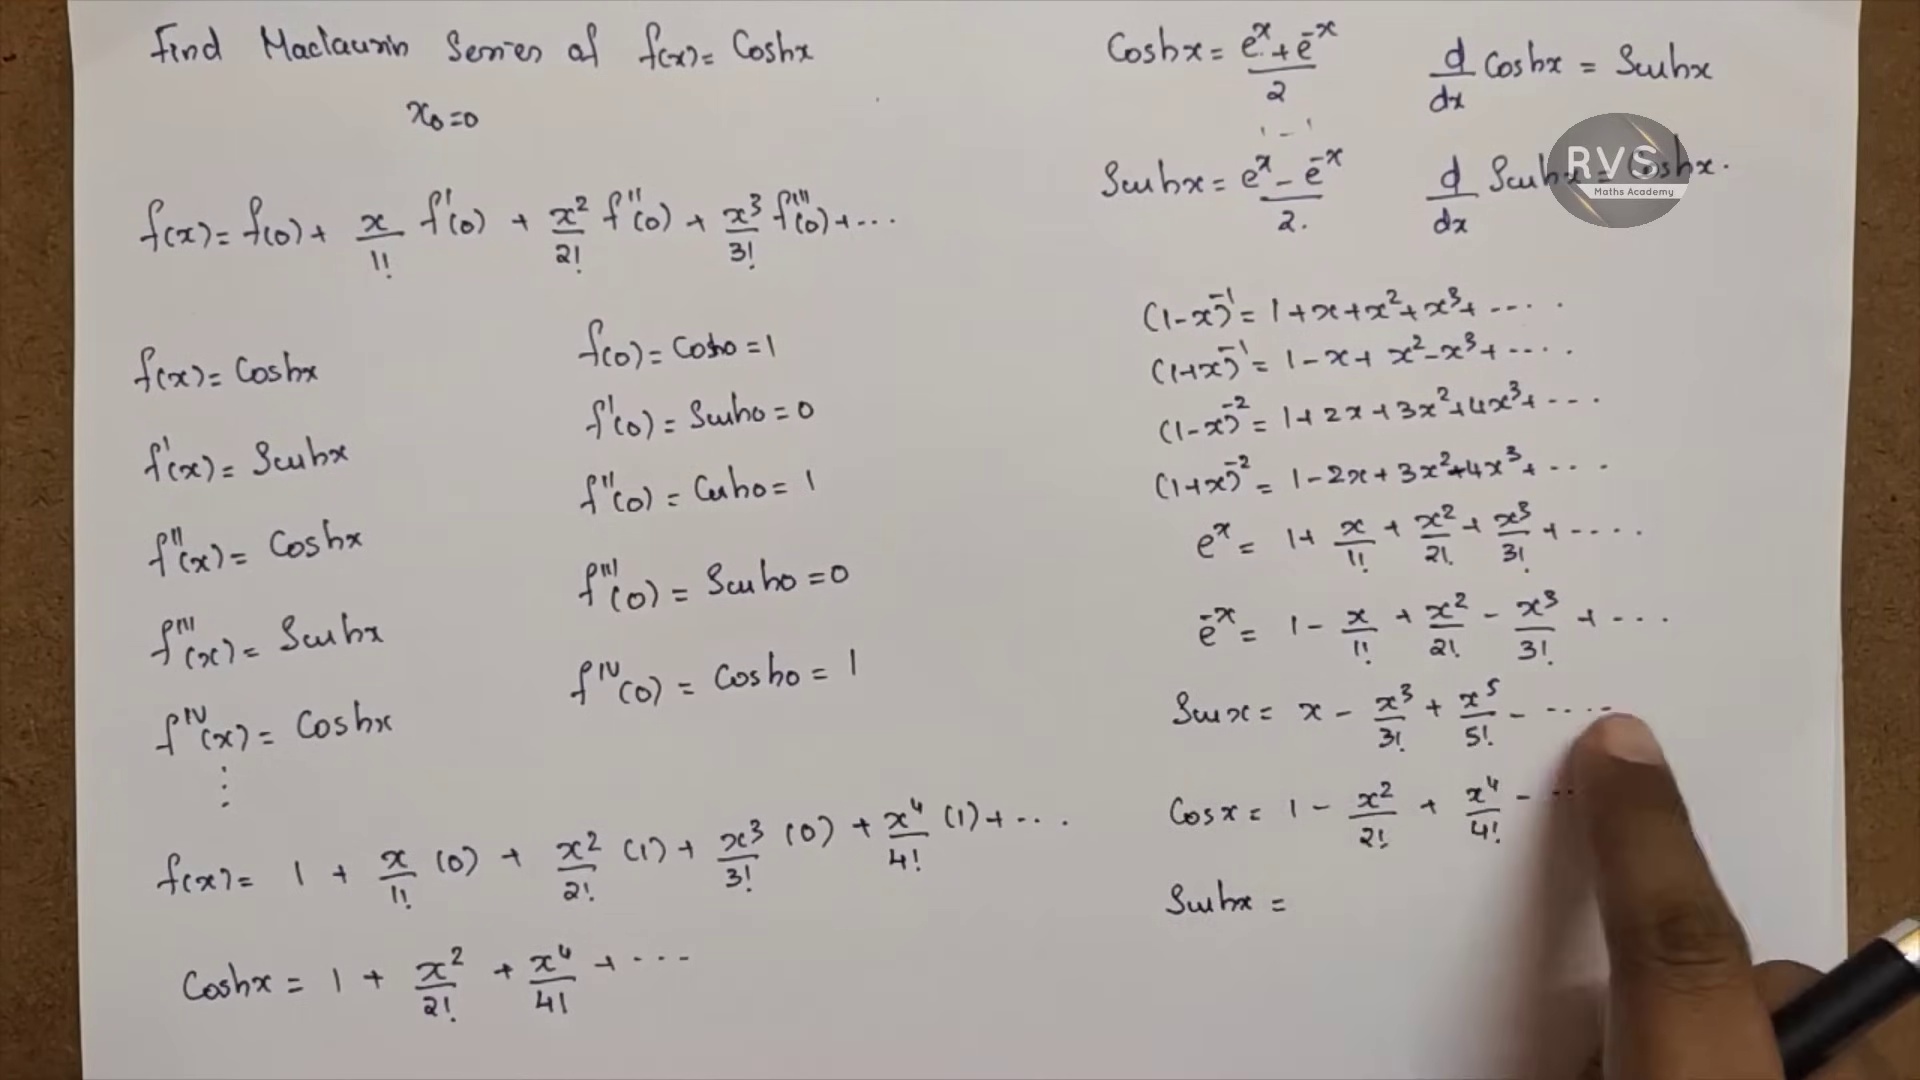 Find Maclaurin Series of f(x) = Coshx
x₀=0
f(x) = f(0) + x/1! f'(0) + x²/2! f''(0) + x³/3! f'''(0) + ...
f(x) = Coshx
f(0) = Cosh0 = 1
f'(x) = Sinhx
f'(0) = Sinh0 = 0
f''(x) = Coshx
f''(0) = Cosh0 = 1
f'''(x) = Sinhx
f'''(0) = Sinh0 = 0
f^IV(x) = Coshx
f^IV(0) = Cosh0 = 1
⋮
f(x) = 1 + x/1! (0) + x²/2! (1) + x³/3! (0) + x⁴/4! (1) + ...
Coshx = 1 + x²/2! + x⁴/4! + ...
Coshx = (eˣ + e⁻ˣ)/2
d/dx Coshx = Sinhx
Sinhx = (eˣ - e⁻ˣ)/2.
d/dx Sinhx = Coshx.
RVS
Maths Academy
(1-x)⁻¹ = 1 + x + x² + x³ + ....
(1+x)⁻¹ = 1 - x + x² - x³ + ....
(1-x)⁻² = 1 + 2x + 3x² + 4x³ + ...
(1+x)⁻² = 1 - 2x + 3x² - 4x³ + ...
eˣ = 1 + x/1! + x²/2! + x³/3! + ....
e⁻ˣ = 1 - x/1! + x²/2! - x³/3! + ....
Sinx = x - x³/3! + x⁵/5! - ....
Cosx = 1 - x²/2! + x⁴/4! - ...
Sinhx =